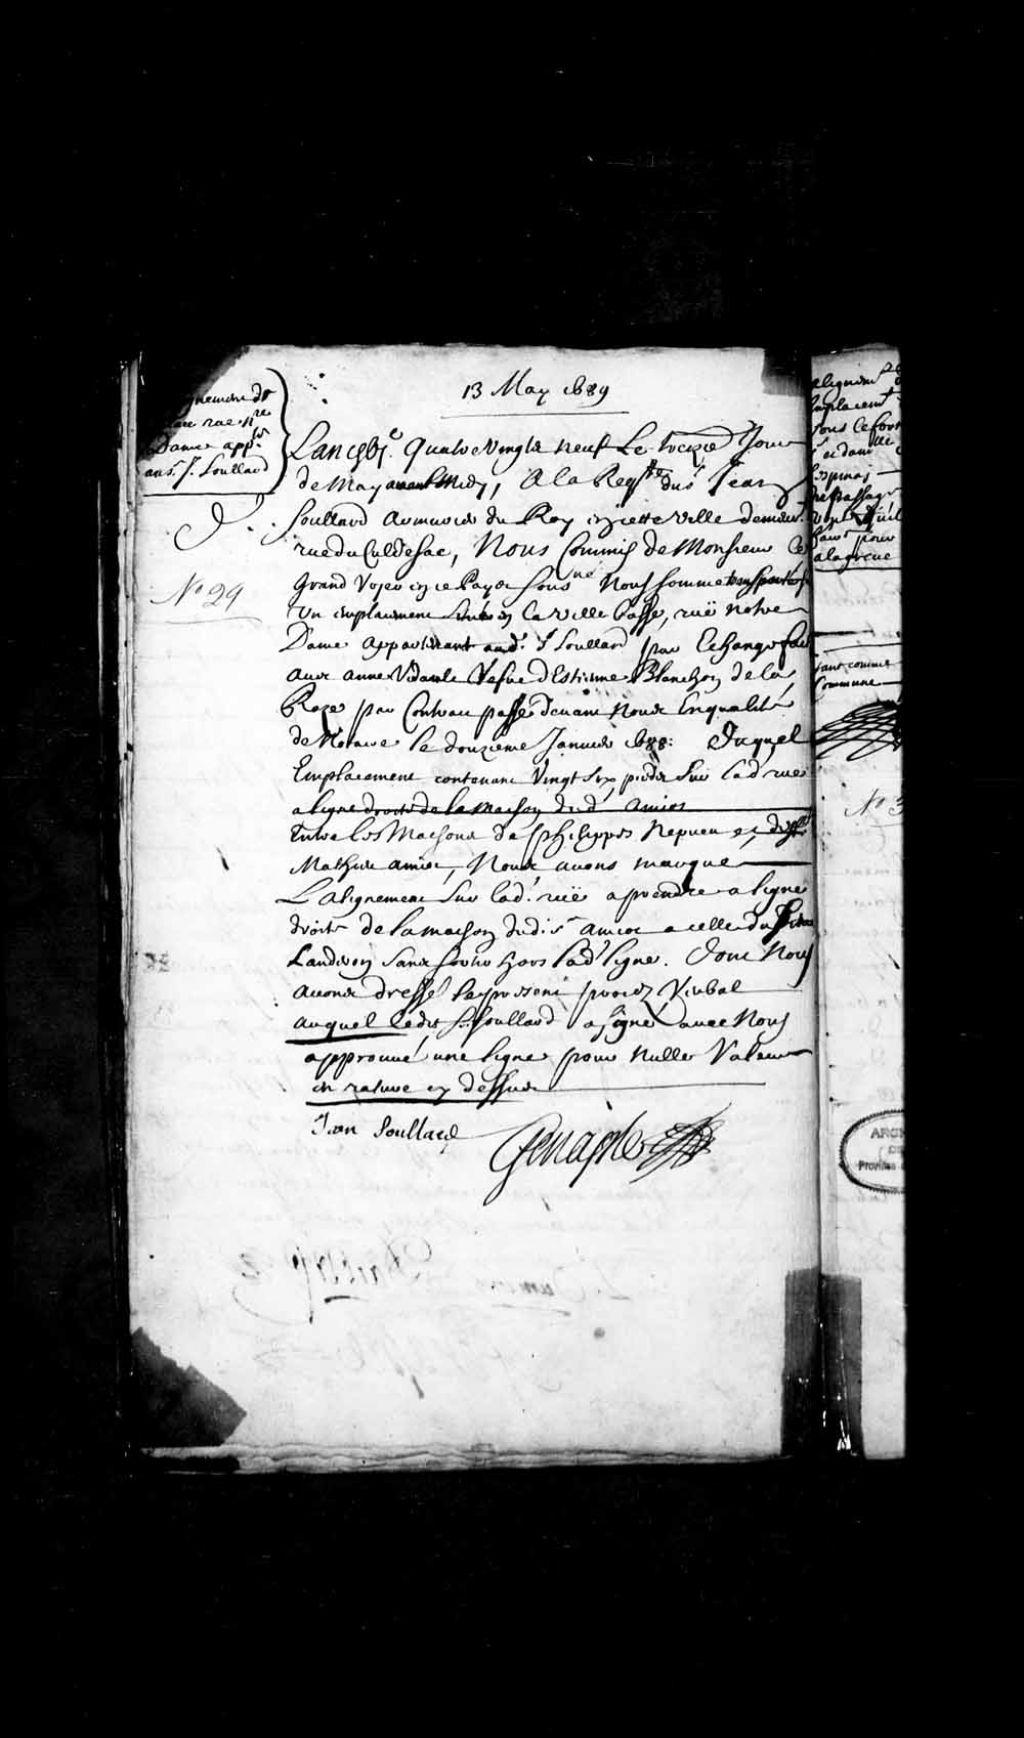 13 May 1689
gnement de
rue Nre
Dame appt
au Sr. J. Soullard
No 29
Lan 16c. Quatre Vingts neuf Le treize Jour
de May avant Midy, A la Reqte du Sr Jean
Soullard Armurier du Roy en cette ville demeurt
rue du Cul de Sac, Nous Commis de Monsieur Le
Grand Voyer en ce Pays Sousné Nous sommes transportés
Un emplacement Situé en la ville basse, ruë Notre
Dame appartenant aud. Sr Soullard par Echange fait
avec Anne Vidault Vefve d'Estienne Blanchon de la
Roze par Contrat passé devant Nous En qualité
de Notaire le douzieme Janvier 1688: Duquel
Emplacement contenant Vingt Six pieds Sur lad. rue
a ligne droite de la maison dud. amiot
Entre les Maisons de Philippes Nepveu et du Sr
Mathieu amiot, Nous avons marqué
L'alignement Sur lad. ruë a prendre a ligne
droite de la maison dudit Sr amiot a celle du
Landron Sans sortir hors lad. ligne. Dont Nous
avons dressé le present procez Verbal
auquel ledit Sr Soullard a signé avec Nous
approuvé une ligne pour nulle Valeur
en rature cy dessus
Jean Soullard
Genaple
alignemt
emplacemt
sous le fort
passage
pour
tant comme
Commune
No 3
ARCH
DE
Province